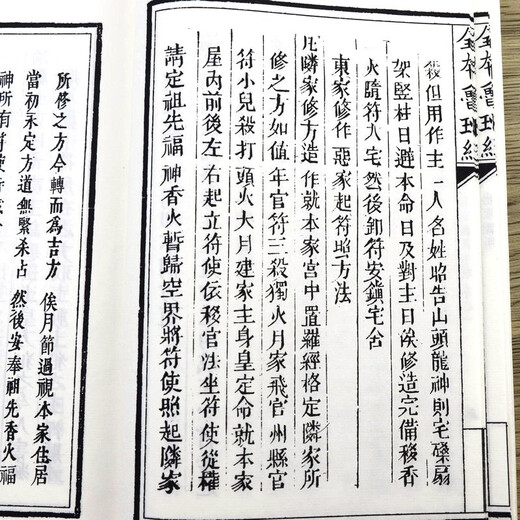 全本魯班經
全本魯班經
殺但用作主一人名姓昭告山頭龍神則宅磉扇
架竪柱日避本命日及對主日俟修造完備移香
火隨符入宅然後卸符安鎮宅舍
東家修作惡家起符照方法
凡隣家修方造作就本家宮中置羅經格定隣家所
修之方如值年官符三殺獨火月家飛官州縣官
符小兒殺打頭火大月建家主身皇定命就本家
屋內前後左右起立符使依移官法坐符使從權
請定祖先福神香火暫歸空界將符使照起隣家
所修之方令轉而爲吉方 俟月節過視本家住居
當初永定方道無緊杀占 然後安奉祖先香火福
神所有符使